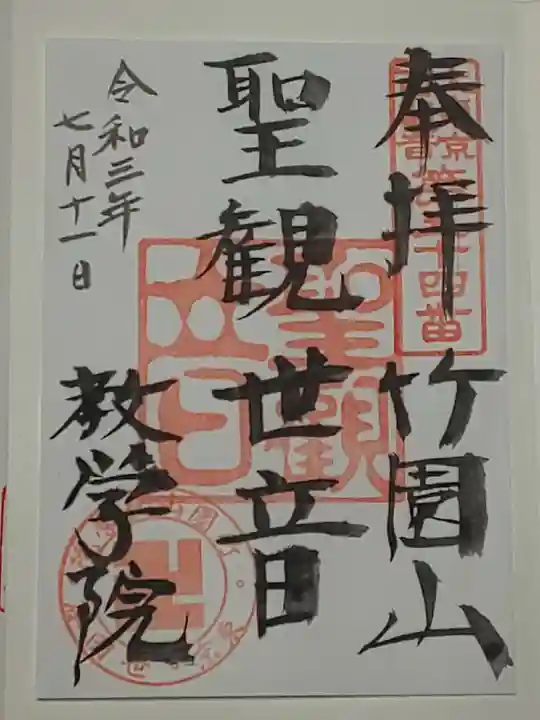 奉拝 竹園山
聖観世音
教学院
令和三年
七月十一日
聖観音